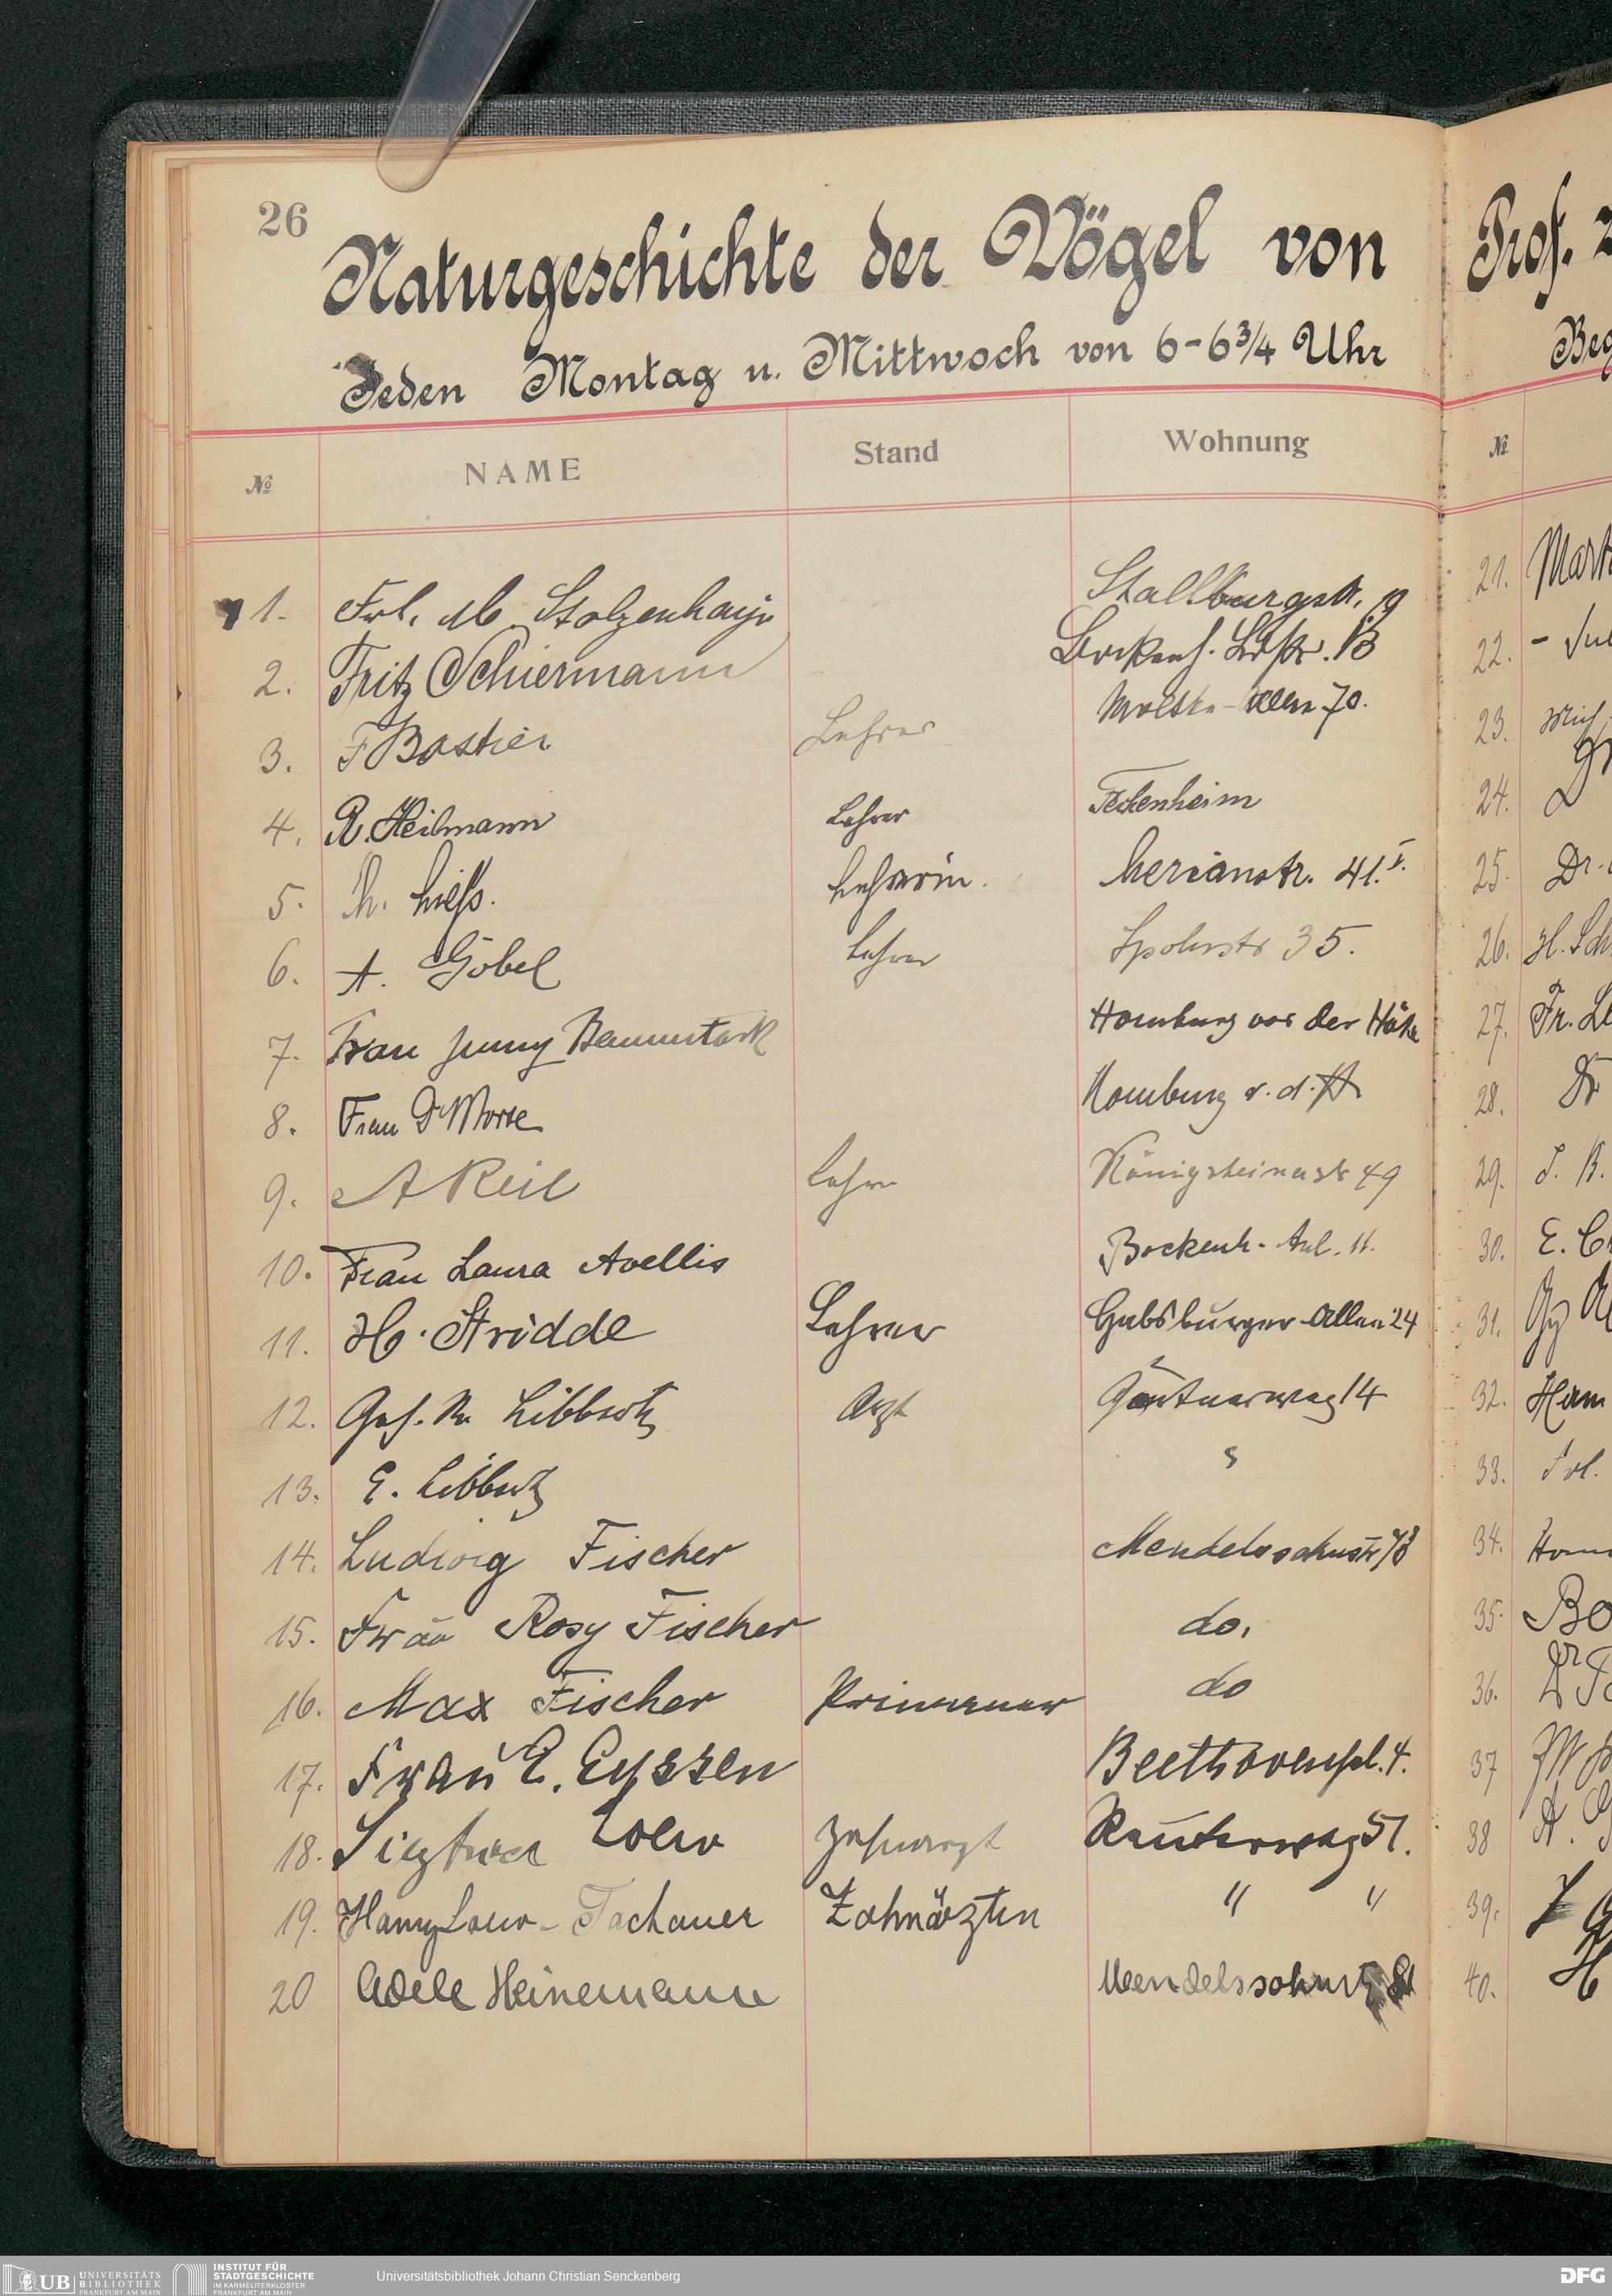 26
Naturgeschichte der Vögel von
Jeden Montag u. Mittwoch von 6-6¾ Uhr
№ NAME Stand Wohnung
1. Frl. M. Stolzenhayn Stallburgstr. 19
2. Fritz Schiermann Bockenh. Ldstr. 13
3. F Bastier Lehrer Moltke-Allee 70.
4. R. Heilmann Lehrer Feckenheim
5. M. Lehrerin. Merianstr. 41.I.
6. A. Göbel Lehrer Spohrstr 35.
7. Frau Jenny Baumstark Homburg vor der Höhe
8. Frau Dr Morse Homburg v. d. H
9. A Keil Lehrer Königsteinerstr 49
10. Frau Laura Avellis Bockenh. Anl. 11.
11. H. Stridde Lehrer Habsburger-Allee 24
12. Geh. Libbertz Arzt Gärtnerweg 14
13. E. Libbertz
14. Ludwig Fischer Mendelssohnstr 78
15. Frau Rosy Fischer do.
16. Max Fischer Primaner do
17. Frau E. Eyssen Beethovenpl. 4.
18. Loew Zahnarzt Reuterweg 51.
19. Hanny Loew-Tachauer Zahnärztin " "
20 Adele Heinemann
Prof.
Beg
№
21. Mart
22. -
23.
24.
25. Dr.
26. H. Sch
27. Fr.
28. Dr
29. J. K.
30. E.
31.
32. Herm
33. Frl.
34.
35. Bo
36. Dr
37
38 A.
39.
40. H
UB UNIVERSITÄTS
BIBLIOTHEK
FRANKFURT AM MAIN
INSTITUT FÜR
STADTGESCHICHTE
IM KARMELITERKLOSTER
FRANKFURT AM MAIN
Universitätsbibliothek Johann Christian Senckenberg
DFG